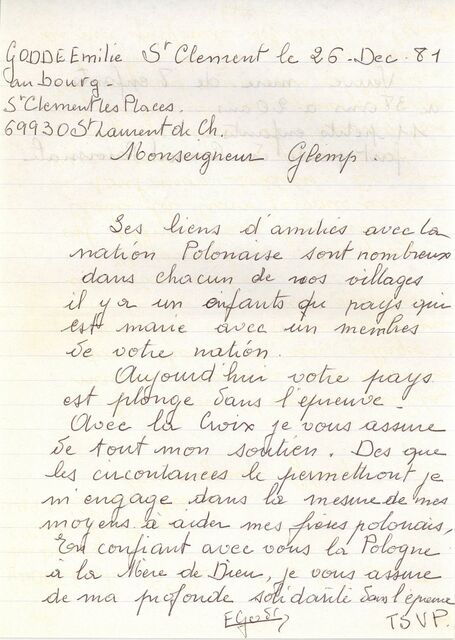 GODDE Emilie St Clement le 26-Dec. 81
au bourg-
St Clement les Places.
69930 St Laurent de Ch.
Monseigneur Glemp.
Ses liens d'amitiés avec la
nation Polonaise sont nombreux
dans chacun de nos villages
il y a un enfants du pays qui
est marie avec un membres
de votre nation.
Aujourd'hui votre pays
est plongé dans l'épreuve
Avec la Croix je vous assure
de tout mon soutien. Des que
les circontances le permettront je
m'engage dans la mesure de mes
moyens à aider mes frères polonais,
En confiant avec vous la Pologne
à la Mère de Dieu, je vous assure
de ma profonde solidarité dans l'épreuve
TSVP.